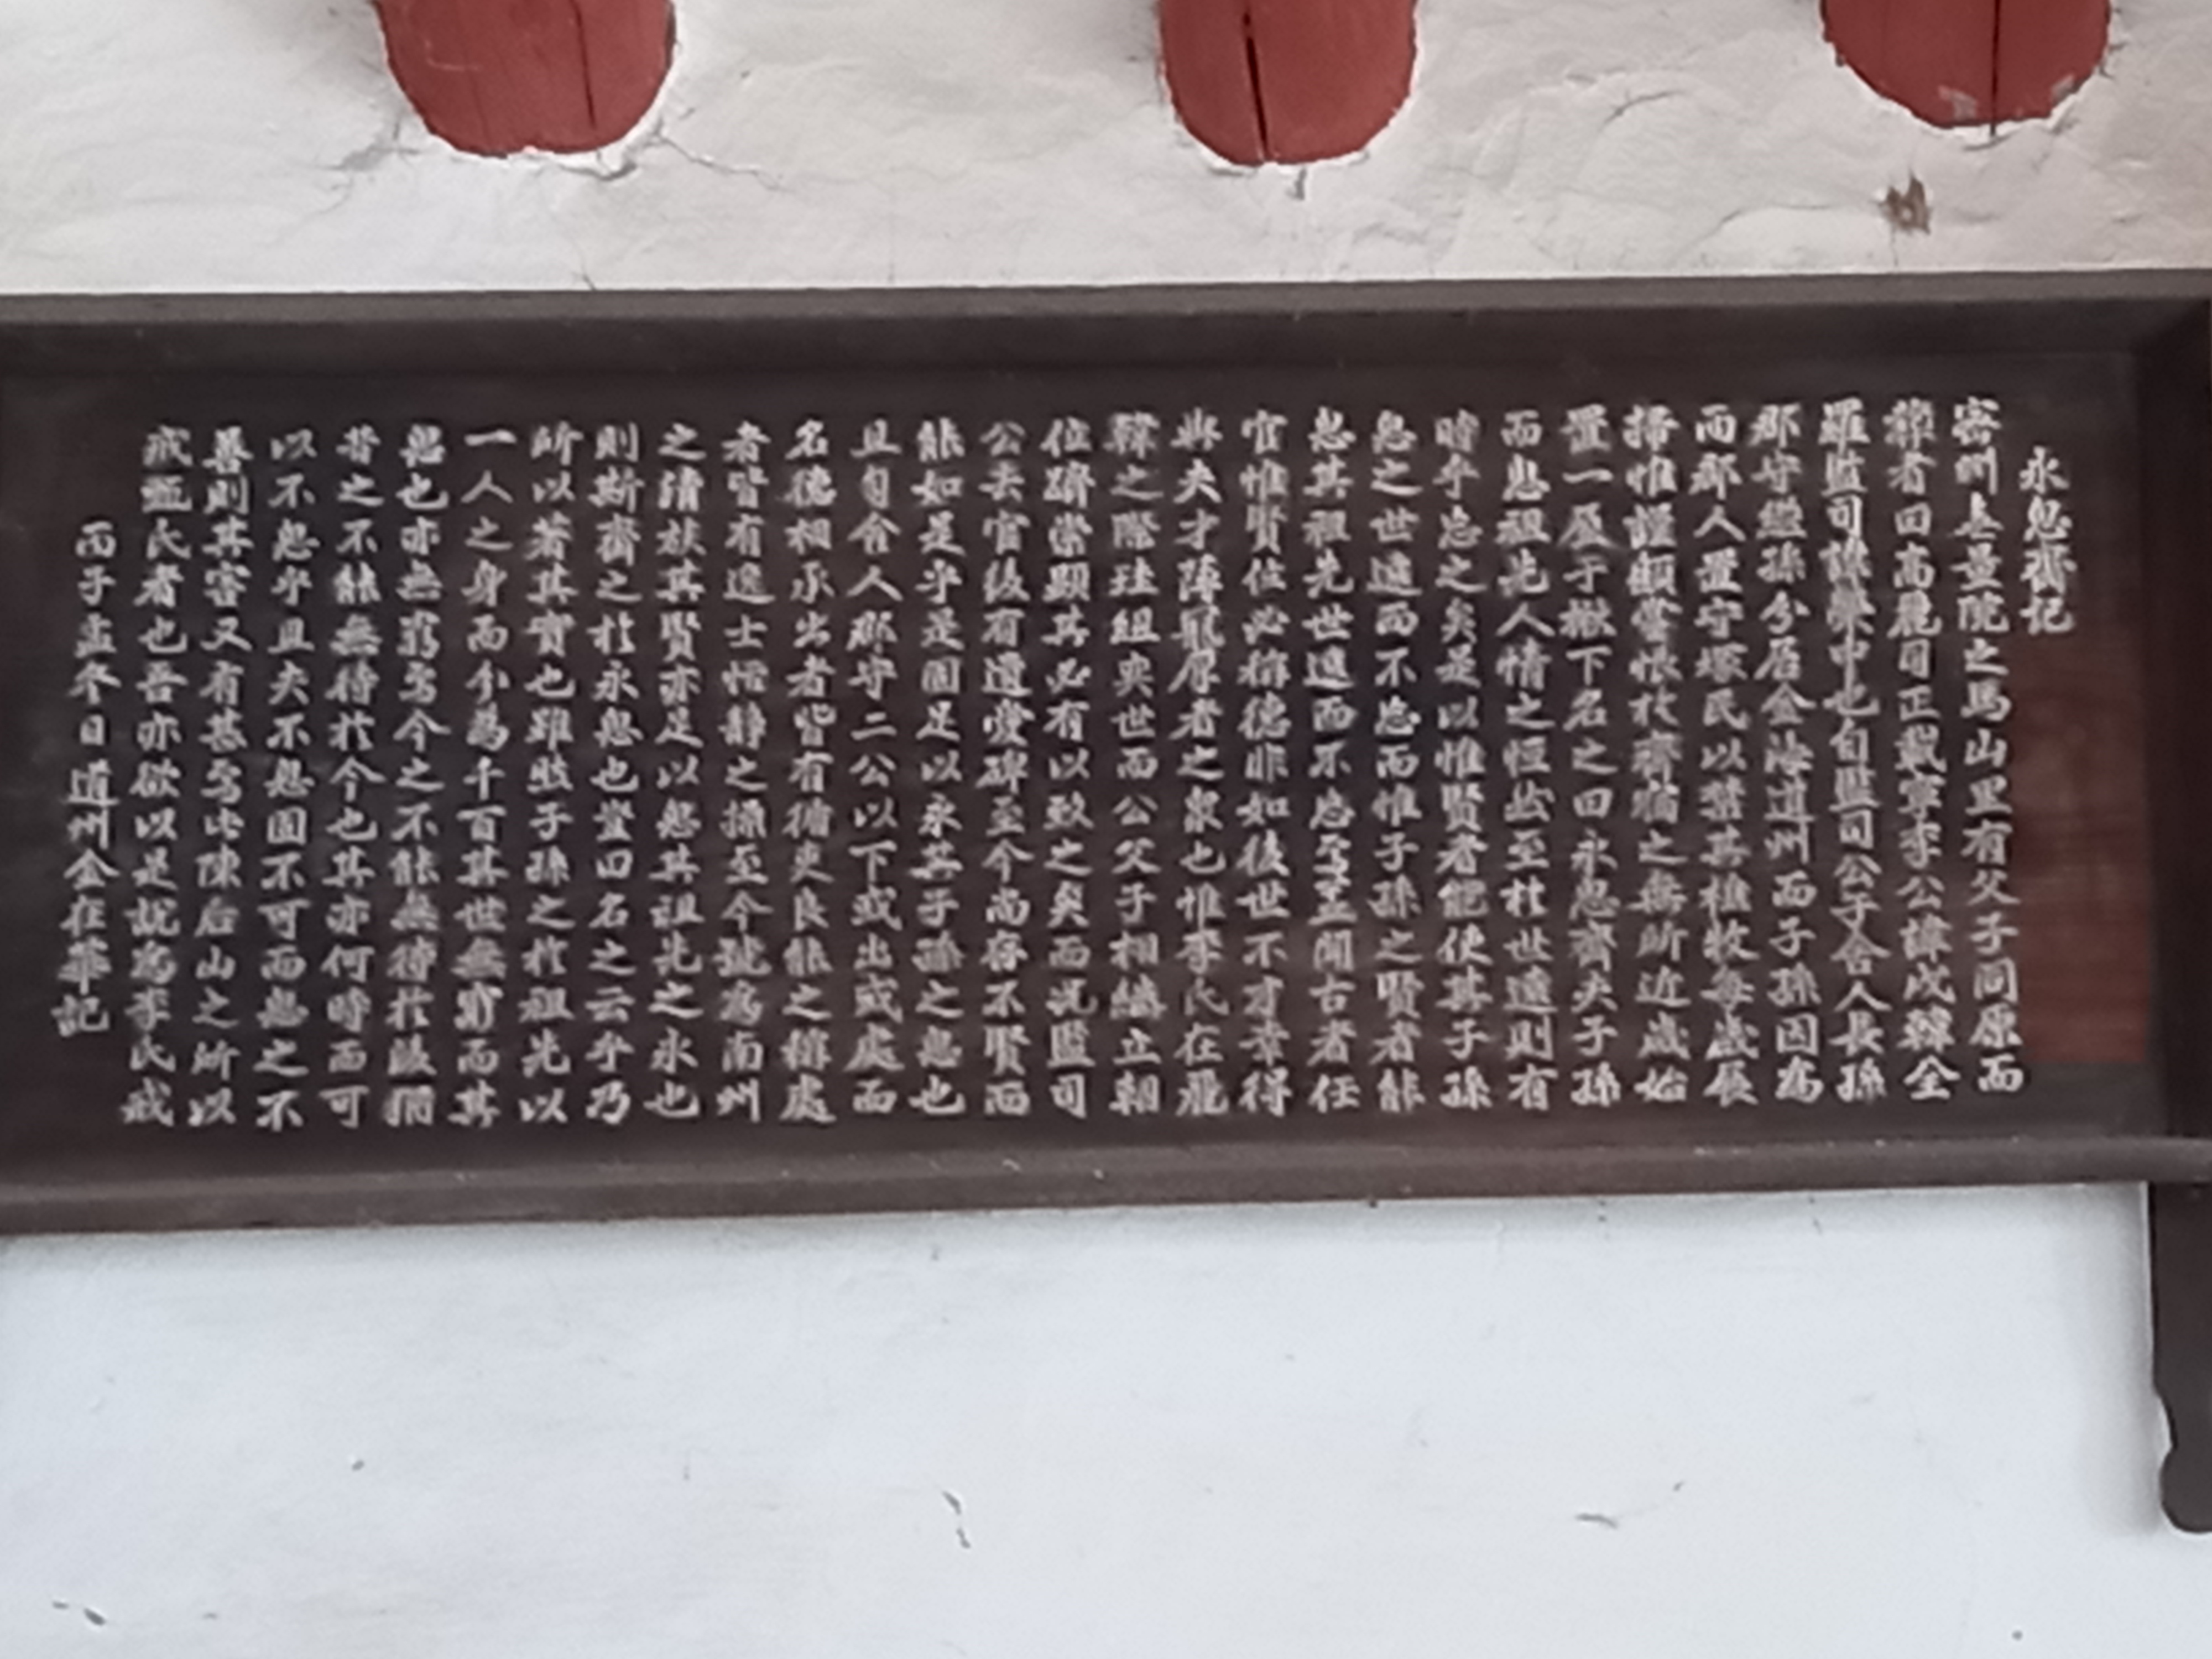 永慕齋記
密州無量院之馬山里有父子同原而
葬者曰高麗司正載寧李公諱戊韓全
羅監司諱榮中也自監司公子舍人長孫
郡守繼孫分居金海道州而子孫因為
而郡人置守塚民以禁其樵牧每歲展
掃惟謹顧嘗恨於齋宿之無所近歲始
置一屋于楸下名之曰永思齋夫子孫
而思祖先人情之恒然至於世遠則有
時乎忘之矣是以惟賢者能使其子孫
思之世遠而不忘而惟子孫之賢者能
思其祖先世遠而不忘 盖聞古者任
官惟賢位必稱德非如後世不才幸得
與夫才薄 厚者之衆也惟李氏在麗
韓之際珪組奕世而公父子相繼立朝
位躋崇顯其必有以致之矣而況監司
公去官後有遺愛碑至今尚存不賢而
能如是乎是固足以永其子孫之思也
且自舍人郡守二公以下或出或處而
名德相承出者皆有循吏良能之稱處
者皆有逸士恬靜之操至今號為南州
之清族其賢亦足以思其祖先之永也
則斯齋之於永思也豈曰名之云乎乃
所以著其實也雖然子孫之於祖先以
一人之身而分為千百其世無窮而其
思也亦無窮焉今之不能無待於後猶
昔之不能無待於今也其亦何時而可
以不思乎且夫不思固不可而思之不
善則其害又有甚焉此陳后山之所以
戒甄氏者也吾亦欲以是說為李氏戒
丙子孟冬日道州金在華記